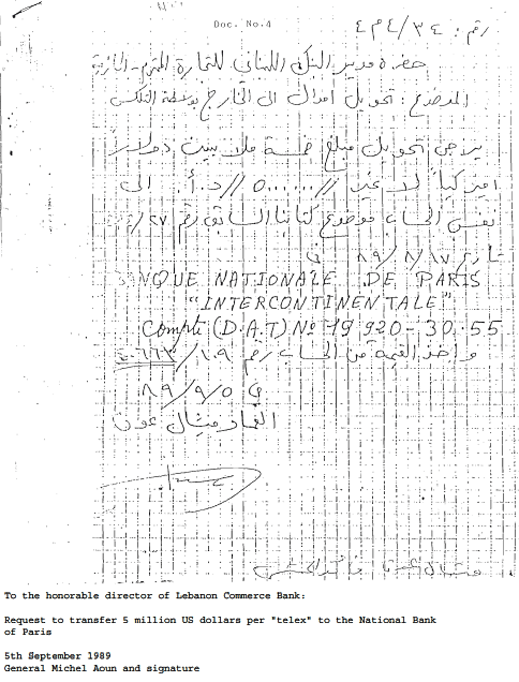 Doc. No.4
رقم : ٣٤/٤٣٤
حضرة مدير البنك اللبناني للتجارة المحترم
الموضوع : تحويل اموال الى الخارج بواسطة التلكس
يرجى تحويل مبلغ خمسة ملايين دولار
اميركيا لا غير //٥٠٠٠٠٠٠// د.أ. الى
نفس الحساب موضوع كتابنا السابق رقم
تاريخ ٨٩/٨/١٧ في
NQUE NATIONALE DE PARIS
"INTERCONTINENTALE"
Compte (D.A.T) No 79 920-30.55
واخذ القيمة من الحساب رقم
في ٨٩/٩/٥
العماد ميشال عون
To the honorable director of Lebanon Commerce Bank:
Request to transfer 5 million US dollars per "telex" to the National Bank
of Paris
5th September 1989
General Michel Aoun and signature